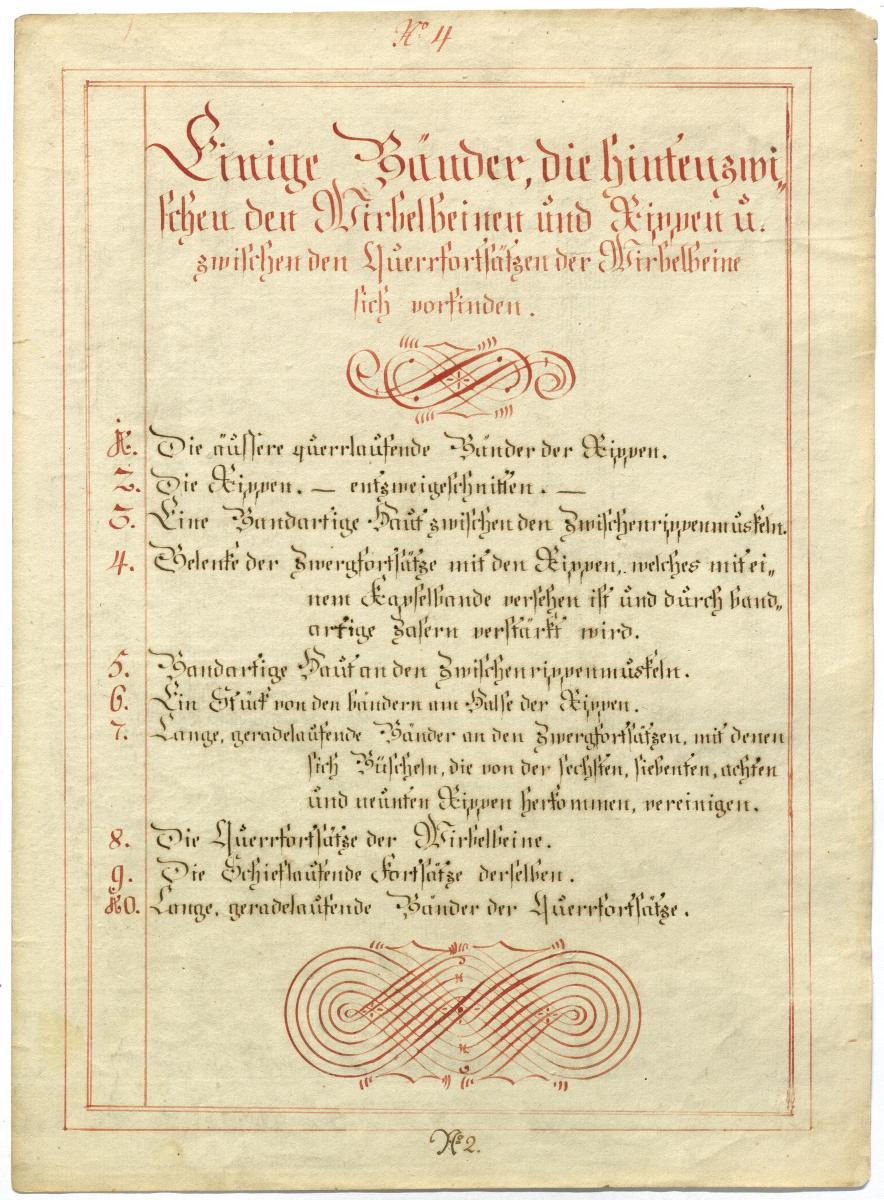 No 4
Einige Bänder, die hinten zwi„
schen den Wirbelbeinen und Rippen u.
zwischen den Querrfortsätzen der Wirbelbeine
sich vorfinden.
1. Die äussere querrlaufende Bänder der Rippen.
2. Die Rippen. — entzweigeschnitten. —
3. Eine Bandartige Haut zwischen den Zwischenrippenmuskeln.
4. Gelenke der Zwergfortsätze mit den Rippen, welches mit ei„
nem Kapselbande versehen ist und durch band„
artige Zasern verstärkt wird.
5. Bandartige Haut an den Zwischenrippenmuskeln.
6. Ein Stück von den bändern am Halse der Rippen.
7. Lange, geradelaufende Bänder an den Zwergfortsätzen, mit denen
sich Büscheln, die von der sechsten, siebenten, achten
und neunten Rippen herkommen, vereinigen.
8. Die Querrfortsätze der Wirbelbeine.
9. Die Schieflaufende Fortsätze derselben.
10. Lange, geradelaufende Bänder der Querrfortsätze.
No 2.